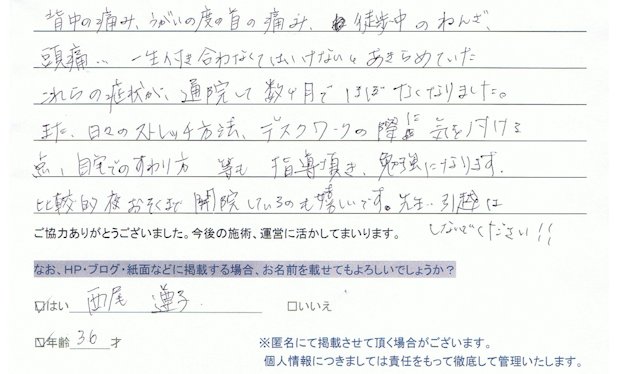 背中の痛み、うがいの度の首の痛み、徒歩中のねんざ、
頭痛… 一生付き合わなくてはいけないとあきらめていた
これらの症状が、通院して数ヶ月でほぼなくなりました。
また、日々のストレッチ方法、デスクワークの際に気を付ける
点、自宅でのすわり方 等も 指導頂き、勉強になります。
比較的夜おそくまで開院しているのも嬉しいです。先生、引越は
しないでください!!
ご協力ありがとうございました。今後の施術、運営に活かしてまいります。
なお、HP・ブログ・紙面などに掲載する場合、お名前を載せてもよろしいでしょうか?
☑はい 西尾 子 □いいえ
☑年齢 36 才
※匿名にて掲載させて頂く場合がございます。
個人情報につきましては責任をもって徹底して管理いたします。